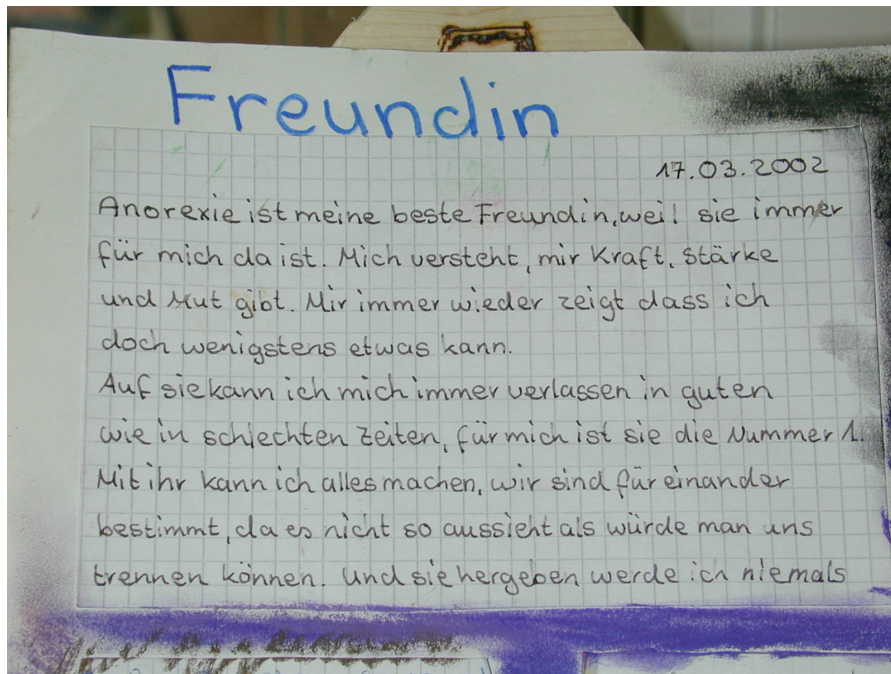 Freundin
17.03.2002
Anorexie ist meine beste Freundin, weil sie immer
für mich da ist. Mich versteht, mir Kraft, Stärke
und Mut gibt. Mir immer wieder zeigt dass ich
doch wenigstens etwas kann.
Auf sie kann ich mich immer verlassen in guten
wie in schlechten Zeiten, für mich ist sie die Nummer 1.
Mit ihr kann ich alles machen, wir sind für einander
bestimmt, da es nicht so aussieht als würde man uns
trennen können. Und sie hergeben werde ich niemals